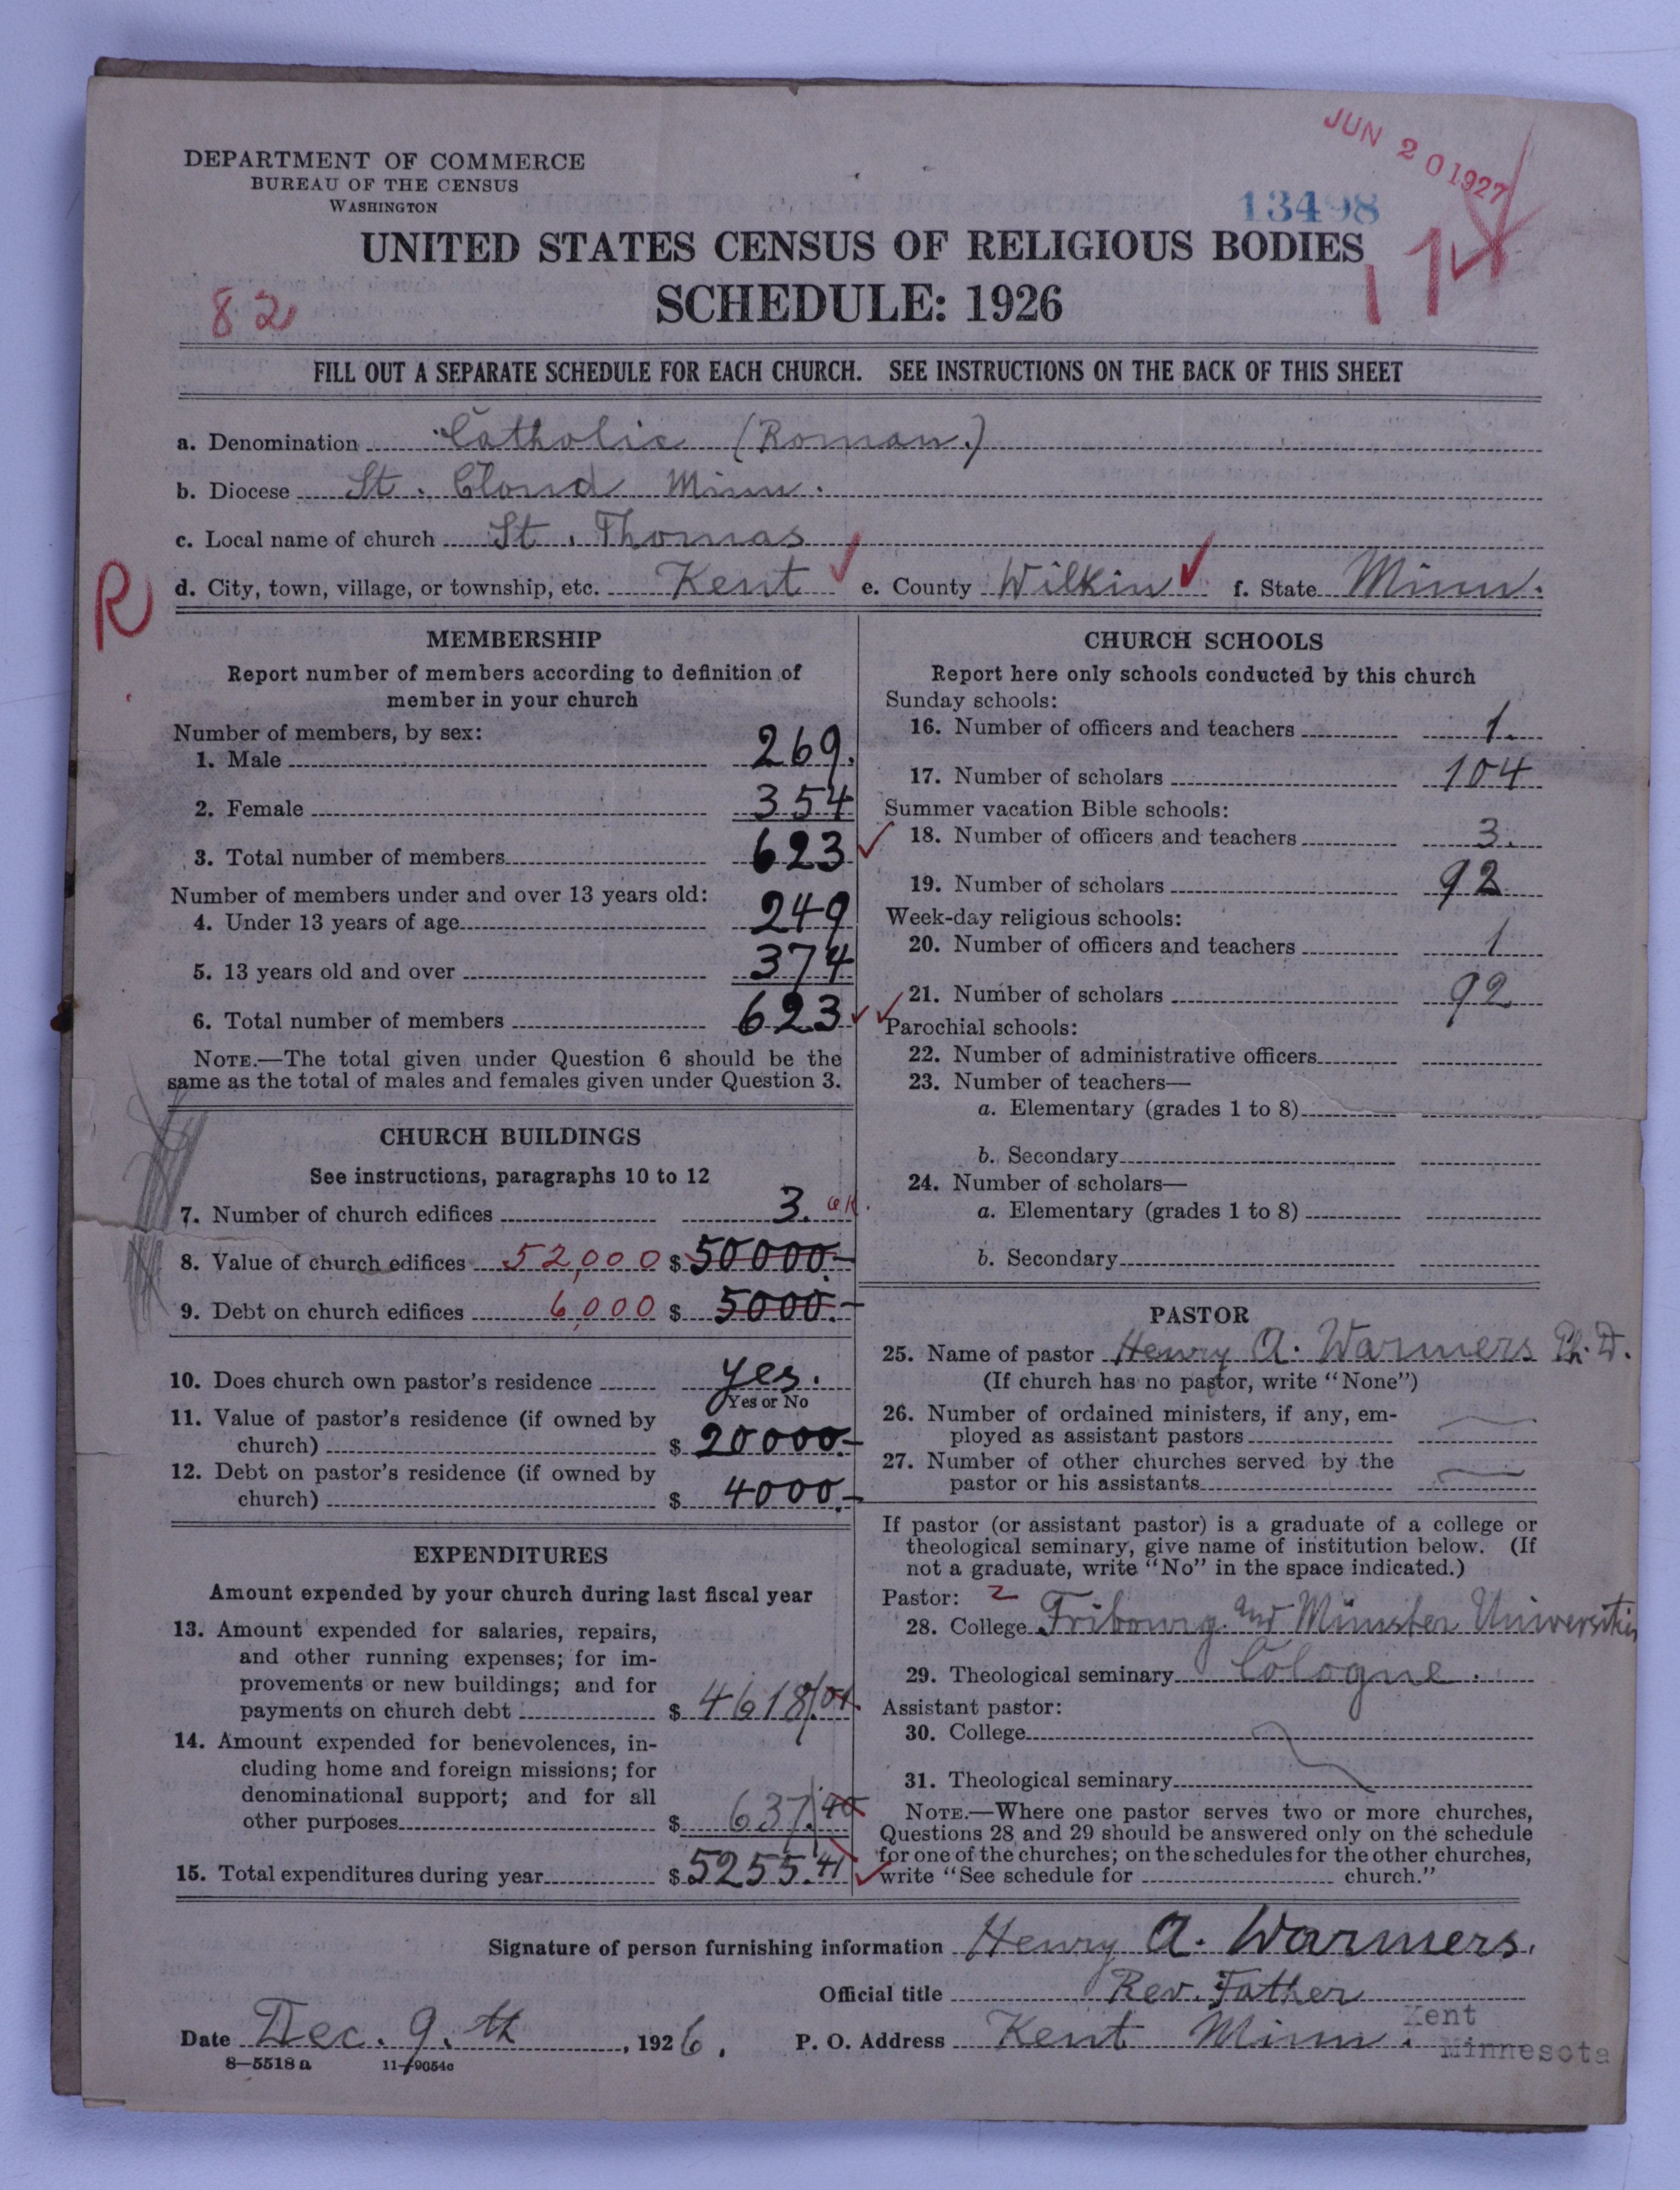 JUN 20 1927
DEPARTMENT OF COMMERCE
BUREAU OF THE CENSUS
WASHINGTON
13498
UNITED STATES CENSUS OF RELIGIOUS BODIES
174
SCHEDULE: 1926
82
FILL OUT A SEPARATE SCHEDULE FOR EACH CHURCH. SEE INSTRUCTIONS ON THE BACK OF THIS SHEET
a. Denomination Catholic (Roman.)
b. Diocese St. Cloud Minn.
c. Local name of church St. Thomas
d. City, town, village, or township, etc. Kent e. County Wilkin f. State Minn.
R
MEMBERSHIP
Report number of members according to definition of
member in your church
Number of members, by sex:
1. Male 269.
2. Female 354
3. Total number of members 623
Number of members under and over 13 years old:
4. Under 13 years of age 249
5. 13 years old and over 374
6. Total number of members 623
NOTE.—The total given under Question 6 should be the
same as the total of males and females given under Question 3.
CHURCH BUILDINGS
See instructions, paragraphs 10 to 12
7. Number of church edifices 3. OK.
8. Value of church edifices 52,000 $ 50000.—
9. Debt on church edifices 6,000 $ 5000.—
10. Does church own pastor's residence yes.
Yes or No
11. Value of pastor's residence (if owned by
church) $ 20000.—
12. Debt on pastor's residence (if owned by
church) $ 4000.—
EXPENDITURES
Amount expended by your church during last fiscal year
13. Amount expended for salaries, repairs,
and other running expenses; for im-
provements or new buildings; and for
payments on church debt $ 4618.01.
14. Amount expended for benevolences, in-
cluding home and foreign missions; for
denominational support; and for all
other purposes $ 637.40
15. Total expenditures during year $ 5255.41
CHURCH SCHOOLS
Report here only schools conducted by this church
Sunday schools:
16. Number of officers and teachers 1.
17. Number of scholars 104
Summer vacation Bible schools:
18. Number of officers and teachers 3.
19. Number of scholars 92
Week-day religious schools:
20. Number of officers and teachers 1
21. Number of scholars 92
Parochial schools:
22. Number of administrative officers
23. Number of teachers—
a. Elementary (grades 1 to 8)
b. Secondary
24. Number of scholars—
a. Elementary (grades 1 to 8)
b. Secondary
PASTOR
25. Name of pastor Henry A. Warmers Ph. D.
(If church has no pastor, write "None")
26. Number of ordained ministers, if any, em-
ployed as assistant pastors
27. Number of other churches served by the
pastor or his assistants
If pastor (or assistant pastor) is a graduate of a college or
theological seminary, give name of institution below. (If
not a graduate, write "No" in the space indicated.)
Pastor: 2
28. College Fribourg and Münster Universities
29. Theological seminary Cologne.
Assistant pastor:
30. College
31. Theological seminary
NOTE.—Where one pastor serves two or more churches,
Questions 28 and 29 should be answered only on the schedule
for one of the churches; on the schedules for the other churches,
write "See schedule for church."
Signature of person furnishing information Henry A. Warmers.
Official title Rev. Father
Date Dec. 9. th, 1926. P. O. Address Kent Minn. Kent
Minnesota
8—5518 a 11—9654c